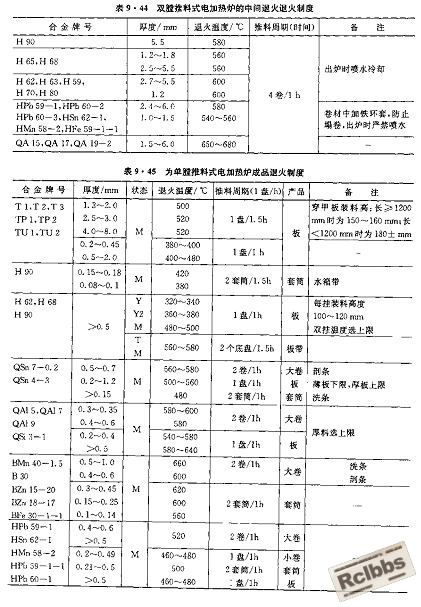 表 9·44 双膛推料式电加热炉的中间退火退火制度
合金牌号 厚度/mm 退火温度/℃ 推料周期(时间) 备注
H 90 5.5 580
H 65,H 68 1.2~1.8 560
2.5~5.5 580
出炉时喷水冷却
H 62,H 63,H 59, 2.7~5.5 600
H 70,H 80 1.2 600
4 卷/1 h
HPb 59-1,HPb 60-2 2.4~6.0 580
HPb 60-3,HSn 62-1, 1.0~1.5 540~560
HMn 58-2,HFe 59-1-1
卷材中加铁环套,防止
塌卷,出炉时严禁喷水
QA 15,QA 17,QA 19-2 1.5~6.0 650~680 —
表 9·45 为单膛推料式电加热炉成品退火制度
合金牌号 厚度/mm 状态 退火温度/℃ 推料周期(1盘/h) 产品 备注
T 1,T 2,T 3 1.3~2.0 500
TP 1,TP 2 2.5~3.0 520 1 盘/1.5h
TU 1,TU 2 4.0~8.0 M 520 板
0.2~0.45 380~400
0.5~2.0 400~480 1 盘/1 h
穿甲板装料高:长≥1200
mm时为 150~160 mm;长
<1200 mm时为 180± mm
H 90 0.15~0.18 M 420 2 套筒/1.5h 套筒 水箱带
0.08~0.1 380
H 62,H 68 Y 320~340
H 90 Y2 360~380 1 盘/1h 板
>0.5 M 480~500
每挂装料高度
100~120 mm
双挂温度选上限
T
M 550~580 2 个底盘/1.5h 板带
QSn 7-0.2 0.5~0.7 560~580 2 卷/1h 大卷 剖条
QSn 4-3 0.2~1.2 M 500~560 1 盘/1h 板 薄板下限,厚板上限
>0.15 480 2 套筒/1h 套筒 洗条
QAl 5,QAl 7 0.3~0.35 580~600
QAl 9 0.4~0.6 M 580 2 卷/1h 大卷
QSi 3-1 0.2~0.4 540~580
>0.5 580~640 1 盘/1h 板
厚料选上限
BMn 40-1.5 0.5~1.0 660 2 卷/1h 大卷 洗条
B 30 0.4~0.6 600 剖条
BZn 15-20 0.3~0.45 M 620
BZn 18-17 0.15~0.25 600 2 套筒/1h 套筒 —
BFe 30-1-1 0.1~0.14 560
HPb 59-1 0.4~0.6
HSn 62-1 >0.5 520 2 卷/1h 大卷
HMn 58-2 0.2~0.49 M 460~480 1 盘/1h 小卷
HPb 59-1-1 0.21~0.5 500 2 套筒/1h 套筒
HPb 60-1 >0.5 460~480 1盘/1h 板
Rclbbs